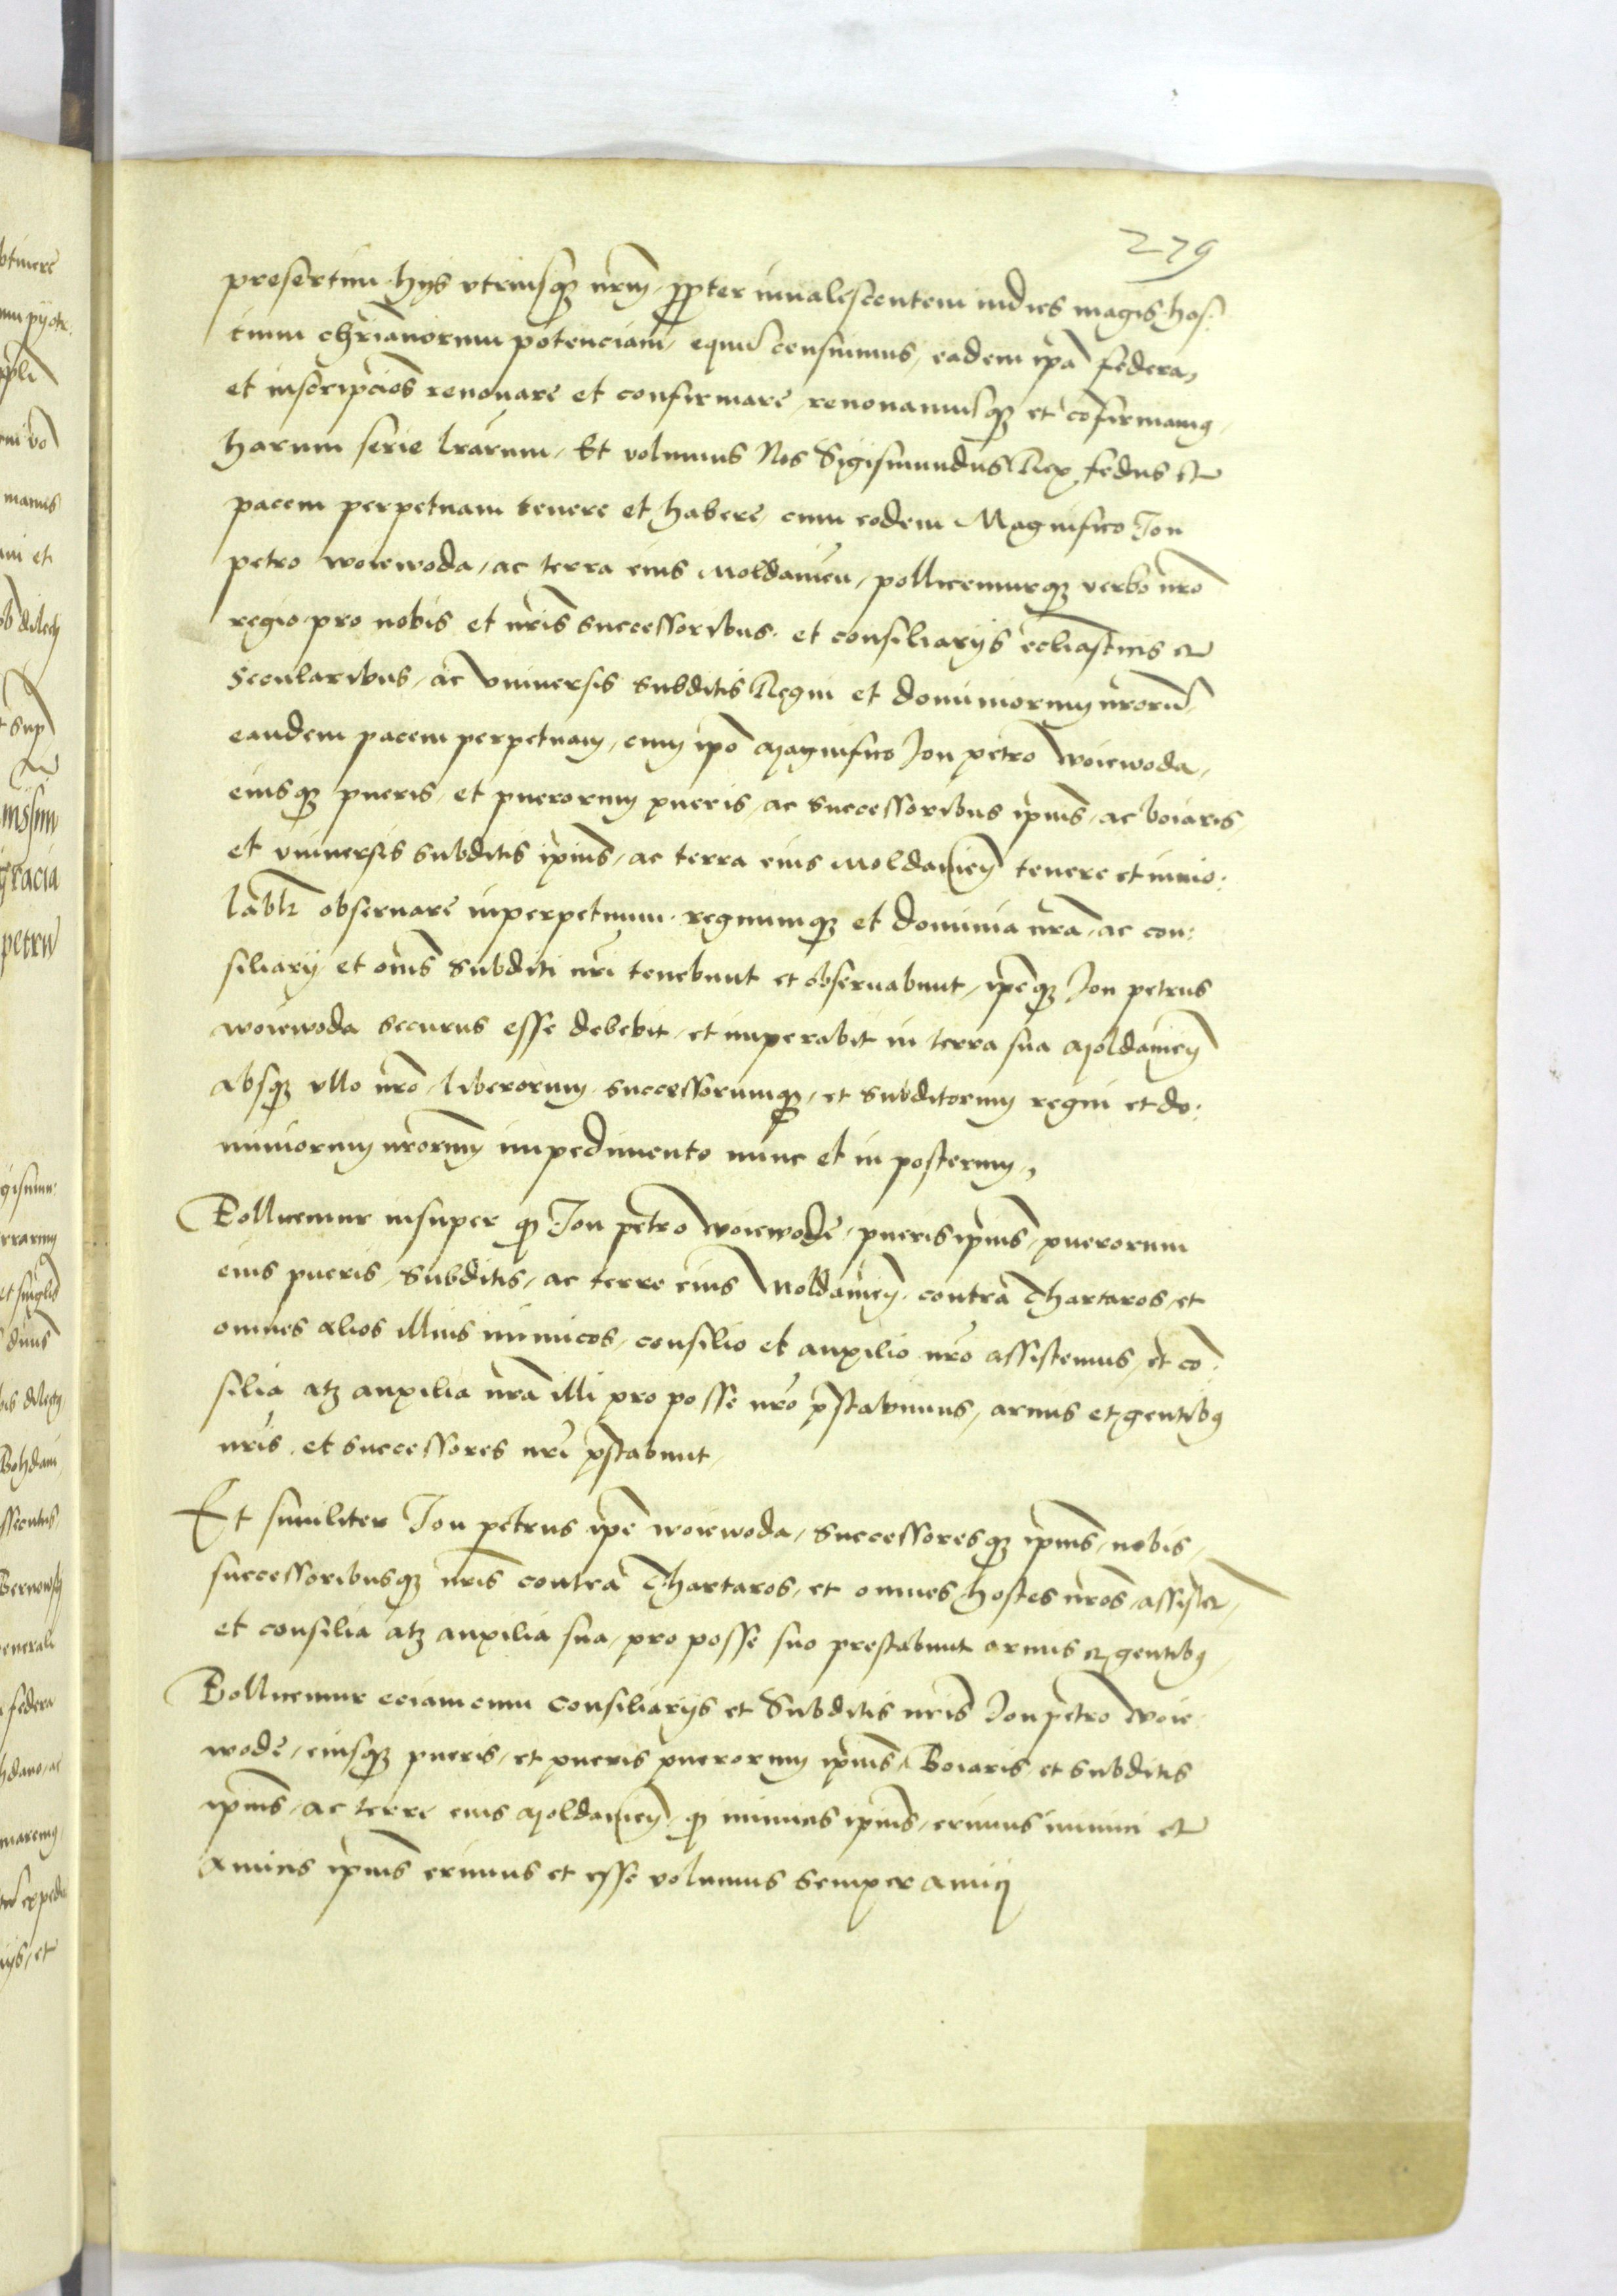 279
presertim hijs vtriusq3 nrm, ppter inualescentem indies magis hos:
tium chrianorum potenciam, equu censuimus, eadem ipa federa,
et inscripcioes renouare et confirmare, renouamusq3 et cofirmamus,
harum serie lrarum, Et volumus Nos Sigismundus Rex fedus et
pacem perpetuam tenere et habere, cum eodem Magnifico Jon
petro woiewoda, ac terra eius Moldauien, pollicemurq3 verbo nro
regio pro nobis et nris successoribus et consiliarijs eccliasticis et
Secularibus, ac vniuersis subditis Regni et dominiorum nrorū,
eandem pacem perpetuam, cum ipo Magnifico Jon petro woiewoda,
eiusq3 pueris, et puerorum pueris, ac successoribus ipius, ac boiaris,
et vniuersis subditis ipius, ac terra eius Moldauien tenere et inuio:
labilr obseruare inperpetuum, regnumq3 et dominia nra, ac con:
siliarij et oms subditi nri tenebunt et obseruabunt, ipeq3 Jon petrus
woiewoda securus esse debebit, et imperabit in terra sua Moldauien
absq3 vllo nro, liberorum successorumq3, et subditorum regni et do:
miniorum nrorum impedimento nunc et in posterum,
Pollicemur insuper q Jon petro woiewode, pueris ipius, puerorum
eius pueris, Subditis, ac terre eius Moldauien, contra Thartaros, et
omnes alios illius inimicos, consilio et auxilio nro assistemus, et co:
silia atq3 auxilia nra illi pro posse nro pstabimus, armis et gentibus
nris, et successores nri pstabunt,
Et similiter Jon petrus ipe woiewoda, successoresq3 ipius, nobis,
successoribusq3 nris contra Thartaros, et omnes hostes nros, assistet,
et consilia atq3 auxilia sua, pro posse suo prestabunt armis et gentibus,
Pollicemur eciam cum consiliarijs et Subditis nris Jon petro woie
wode, eiusq3 pueris, et pueris puerorum ipius, Boiaris, et subditis
ipius, ac terre eius Moldauien, q inimicis ipius, erimus inimici et
amicis ipius erimus et esse volumus semper amici